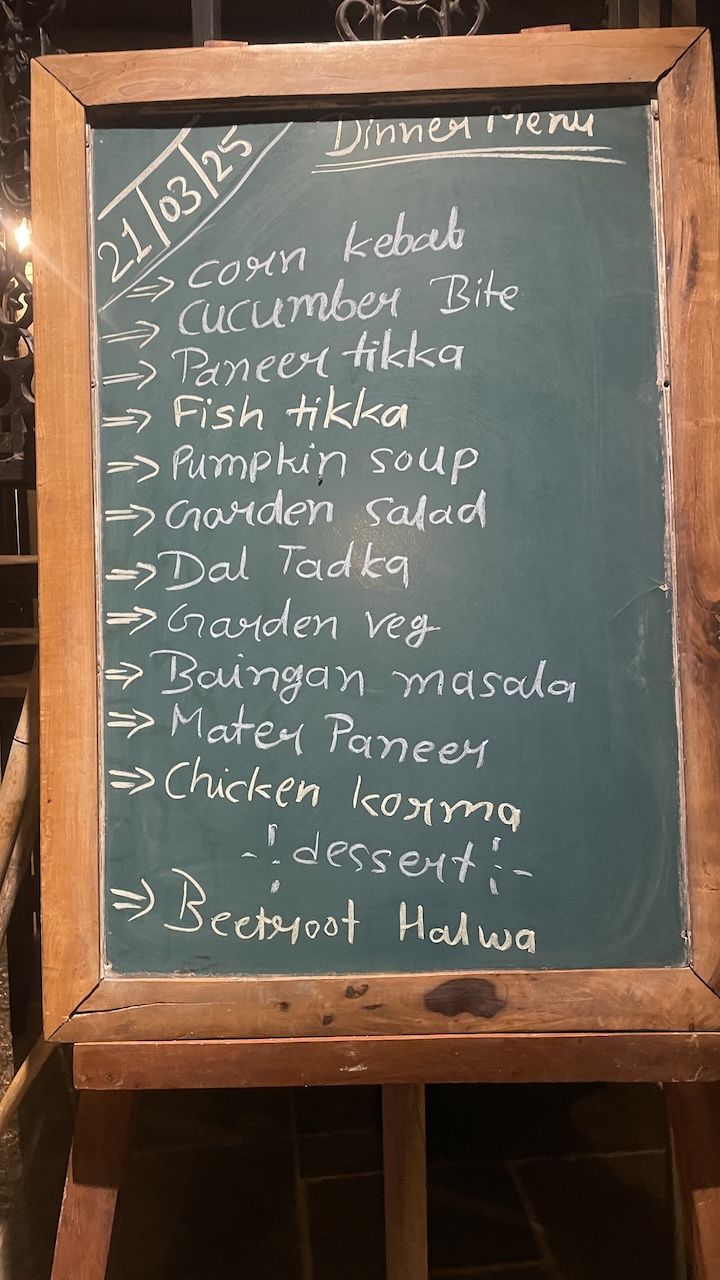 Dinner Menu
21/03/25
⇒ corn kebab
⇒ cucumber Bite
⇒ Paneer tikka
⇒ Fish tikka
⇒ Pumpkin soup
⇒ Garden salad
⇒ Dal Tadka
⇒ Garden veg
⇒ Baingan masala
⇒ Mater Paneer
⇒ Chicken korma
-¦ dessert ¦-
⇒ Beetroot Halwa